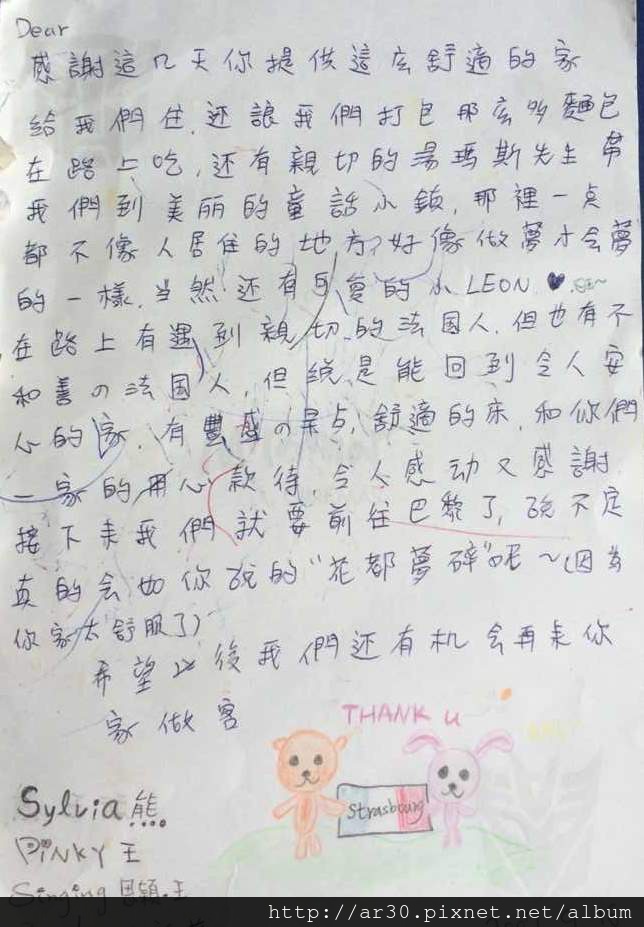 Dear
感謝這几天你提供這広舒適的家
給我們住,还讓我們打包那広多麵包
在路上吃,还有親切的湯瑪斯先生帶
我們到美丽的童話小鎮,那裡一点
都不像人居住的地方,好像做夢才会夢
的一樣.当然还有可愛的小LEON♥.
在路上有遇到親切的法国人,但也有不
和善の法国人,但総是能回到令人安
心的家,有豐盛の早点,舒適的床,和你們
一家的用心款待,令人感动又感謝.
接下来我們就要前往巴黎了,說不定
真的会如你說的"花都夢碎"呢～(因為
你家太舒服了)
希望以後我們还有机会再来你
家做客
THANK u
Strasbourg
Sylvia 熊
PiNKY 王
Singing 思穎.王
http://ar30.pixnet.net/album